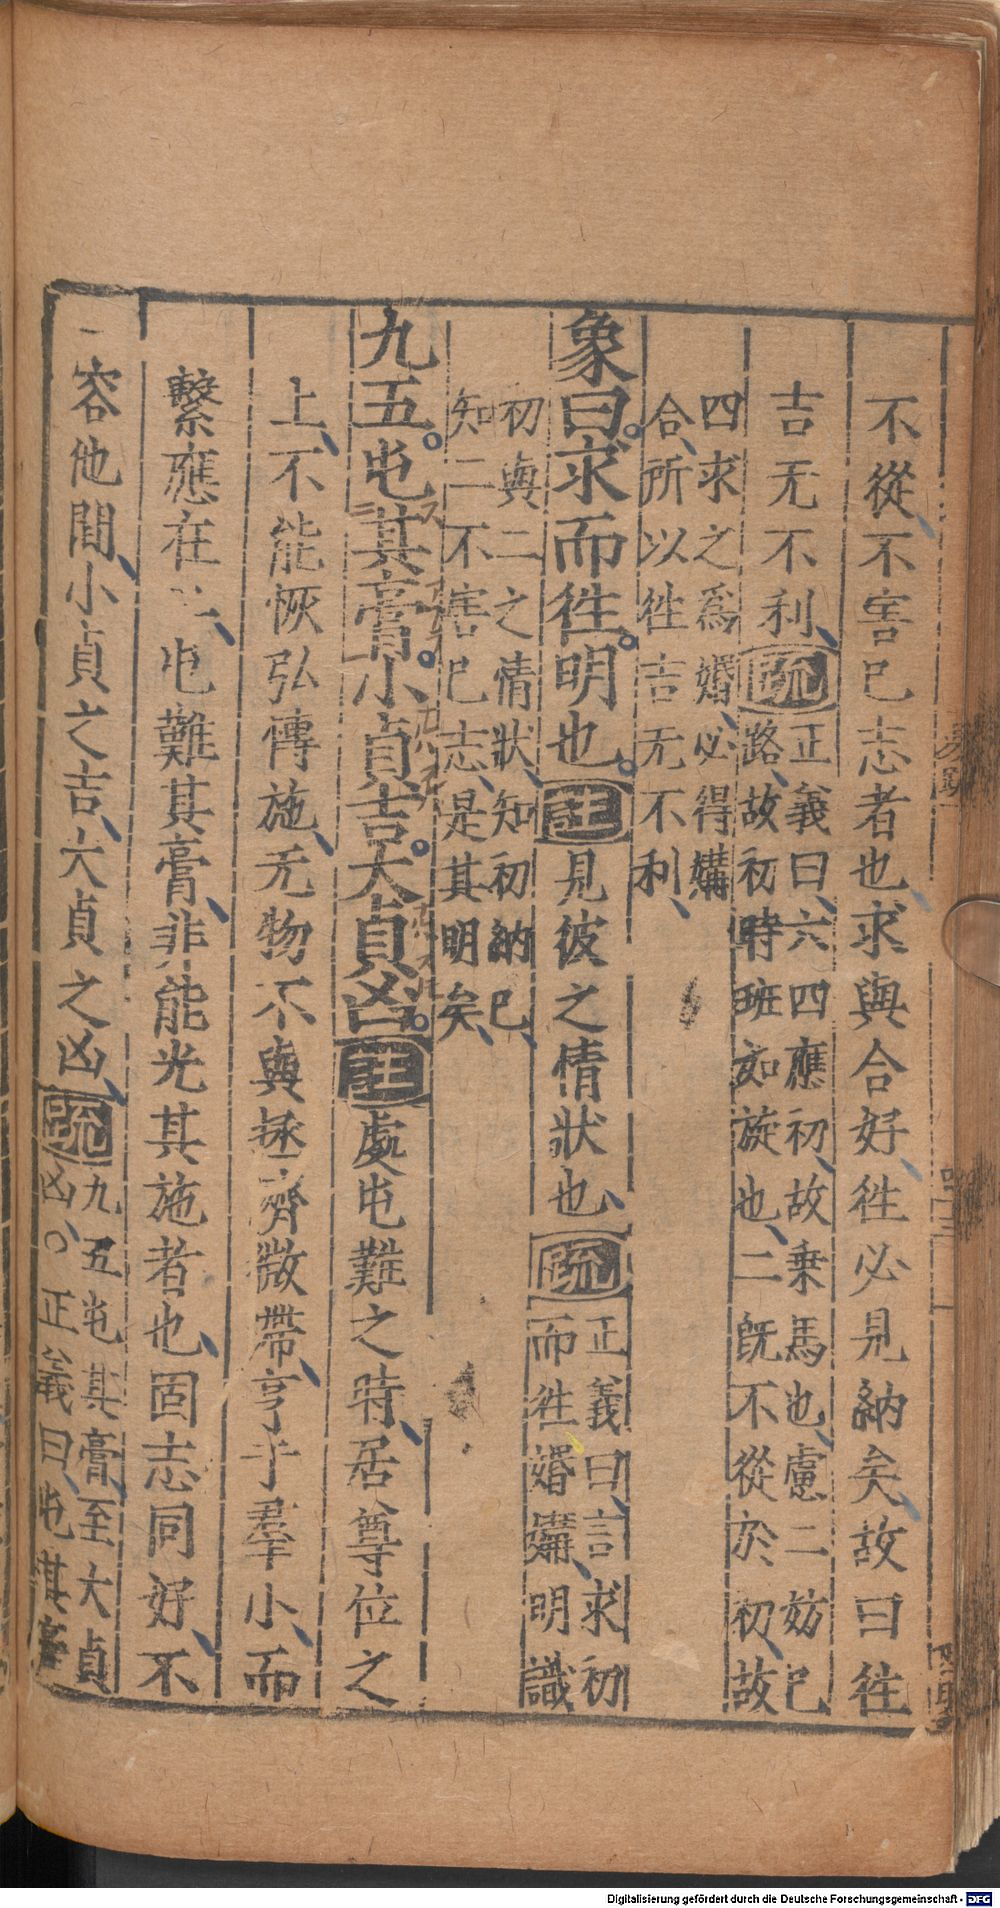 不從不害已志者也求與合好徃必見納矣故曰徃
吉无不利疏正義曰六四應初故乗馬也慮二妨已
路故初時班如旋也二旣不從於初故
四求之爲婚必得媾
合所以徃吉无不利
象曰求而徃明也註見彼之情狀也疏正義曰言求初
而徃婚媾明識
初與二之情狀知初納已
知二不害已志是其明矣
九五屯其膏小貞吉大貞凶註處屯難之時居尊位之
上不能恢弘博施无物不與拯濟微滯亨于羣小而
繫應在二屯難其膏非能光其施者也固志同好不
容他間小貞之吉大貞之凶疏九五屯其膏至大貞
凶○正義曰屯其膏
Digitalisierung gefördert durch die Deutsche Forschungsgemeinschaft - DFG